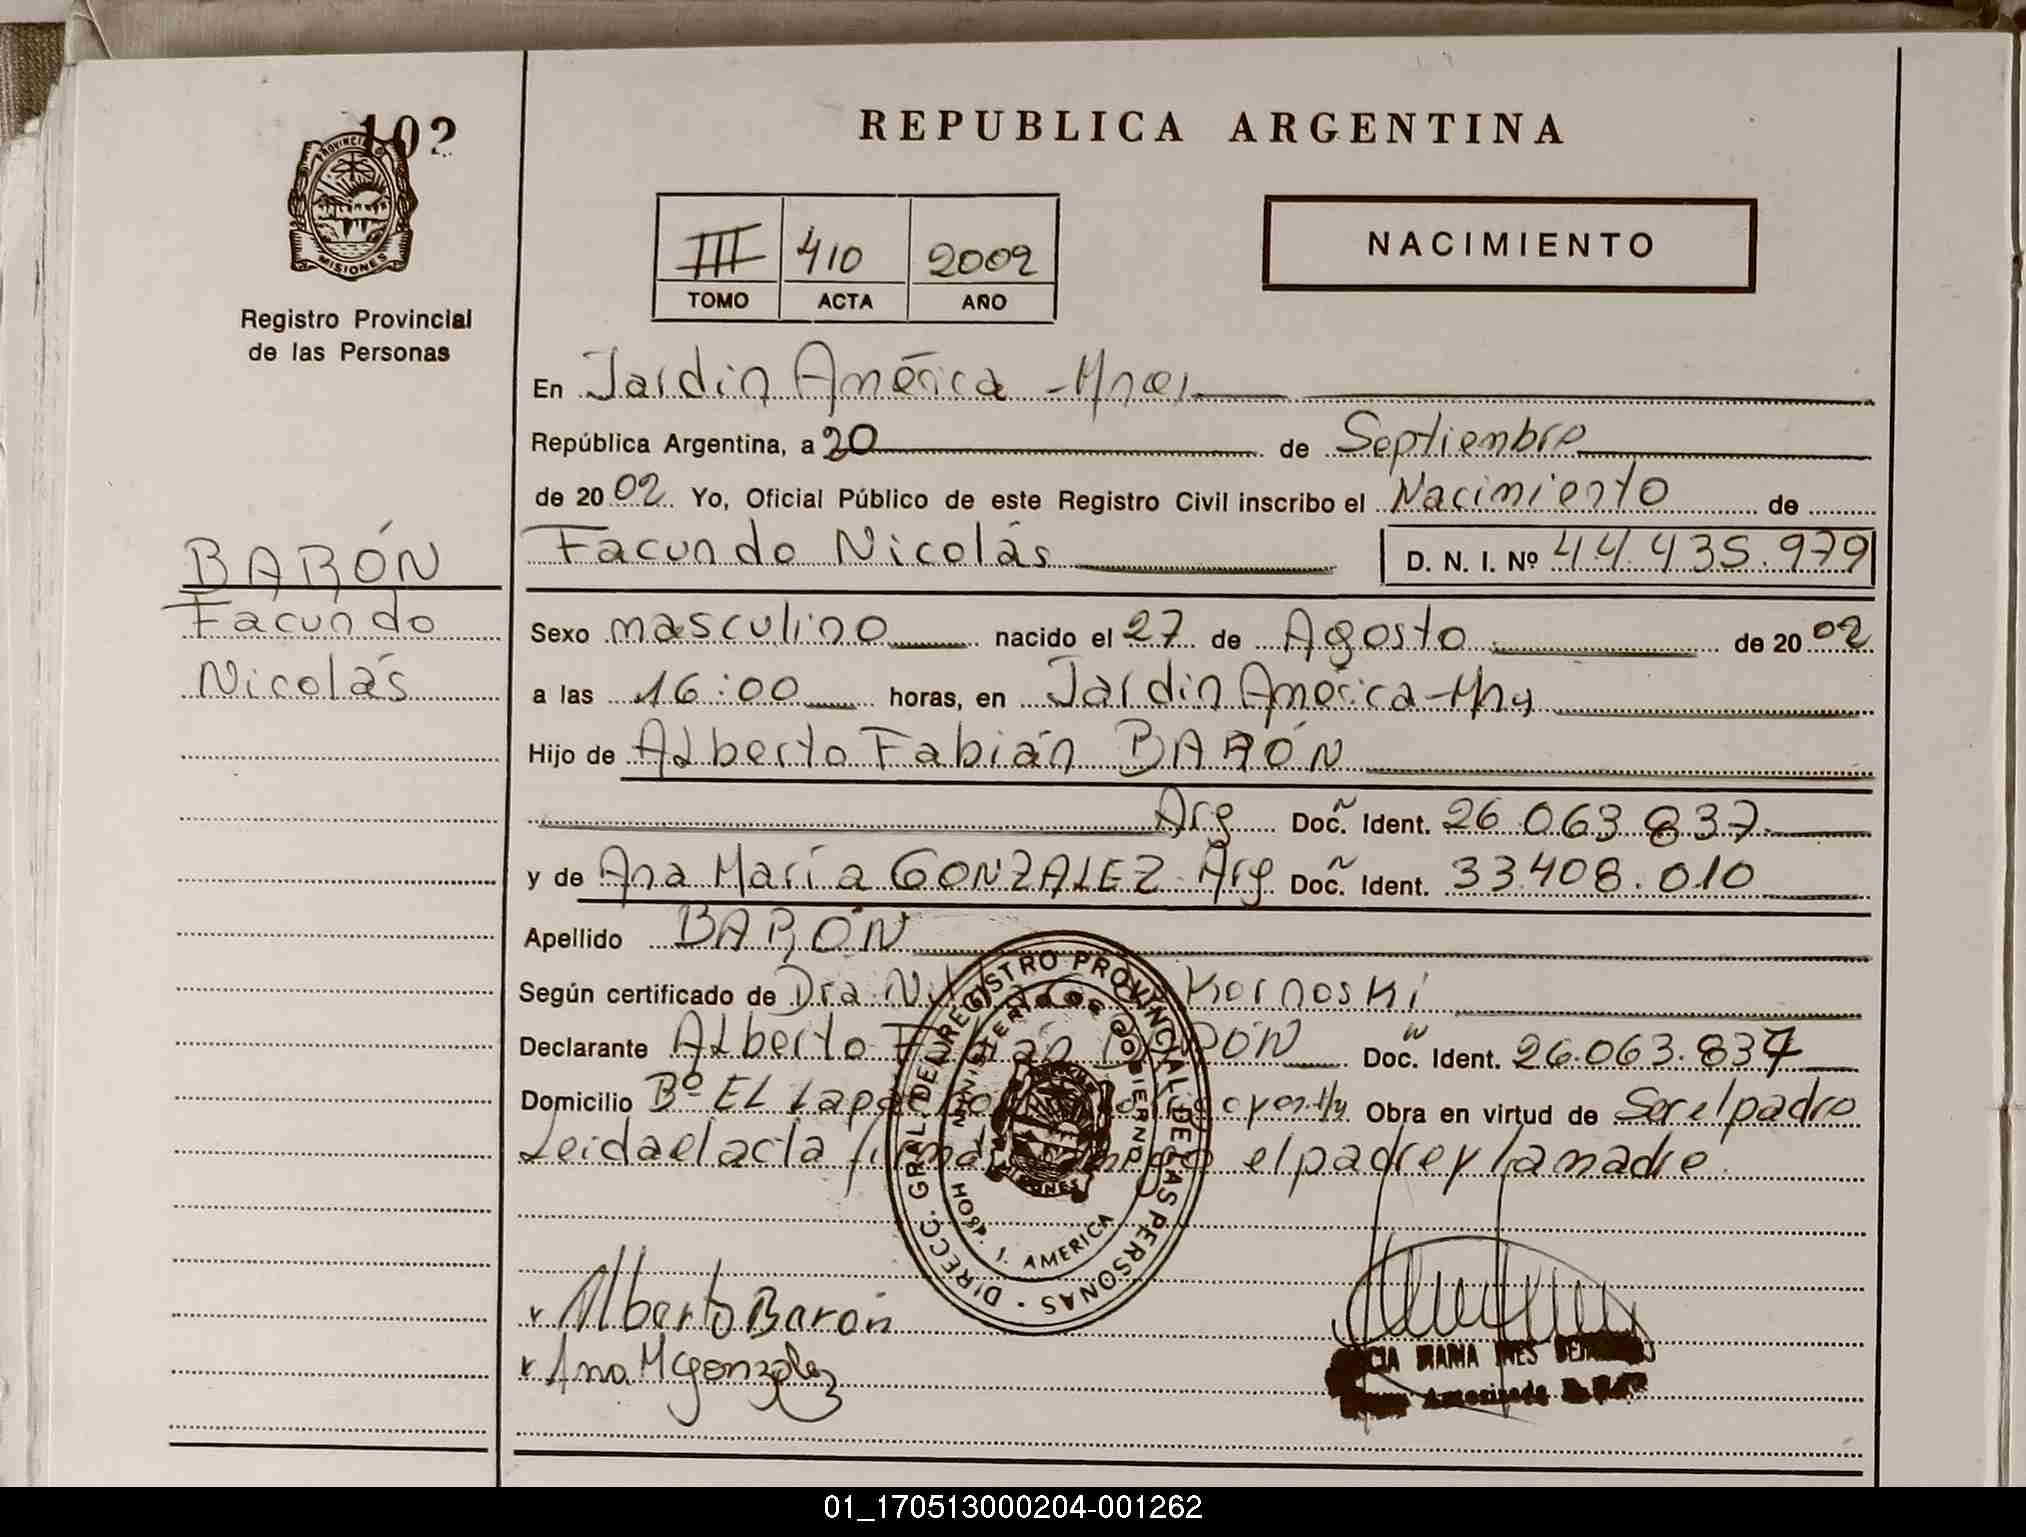 102
PROVINCIA DE
MISIONES
Registro Provincial
de las Personas
REPUBLICA ARGENTINA
III 410 2002
TOMO ACTA AÑO
NACIMIENTO
En Jardin América - Mnes
República Argentina, a 20 de Septiembre
de 2002 Yo, Oficial Público de este Registro Civil inscribo el Nacimiento de
Facundo Nicolás D. N. I. Nº 44.435.979
BARÓN
Facundo
Nicolás
Sexo masculino nacido el 27 de Agosto de 2002
a las 16:00 horas, en Jardin América
Hijo de Alberto Fabián BARÓN
Arg Doc. Ident. 26.063.837
y de Ana María GONZALEZ Arg Doc. Ident. 33.408.010
Apellido BARÓN
Según certificado de Dra. Kornoski
Declarante Alberto Fabián BARÓN Doc. Ident. 26.063.837
Domicilio Bº EL Lapacho Obra en virtud de Ser el padre
Leida el acta el padre y la madre.
DIRECC. GRAL. DEL REGISTRO PROVINCIAL DE LAS PERSONAS
MINISTERIO DE GOBIERNO
HOSP. J. AMERICA
Alberto Barón
Ana M Gonzalez
MARIA INES
01_170513000204-001262